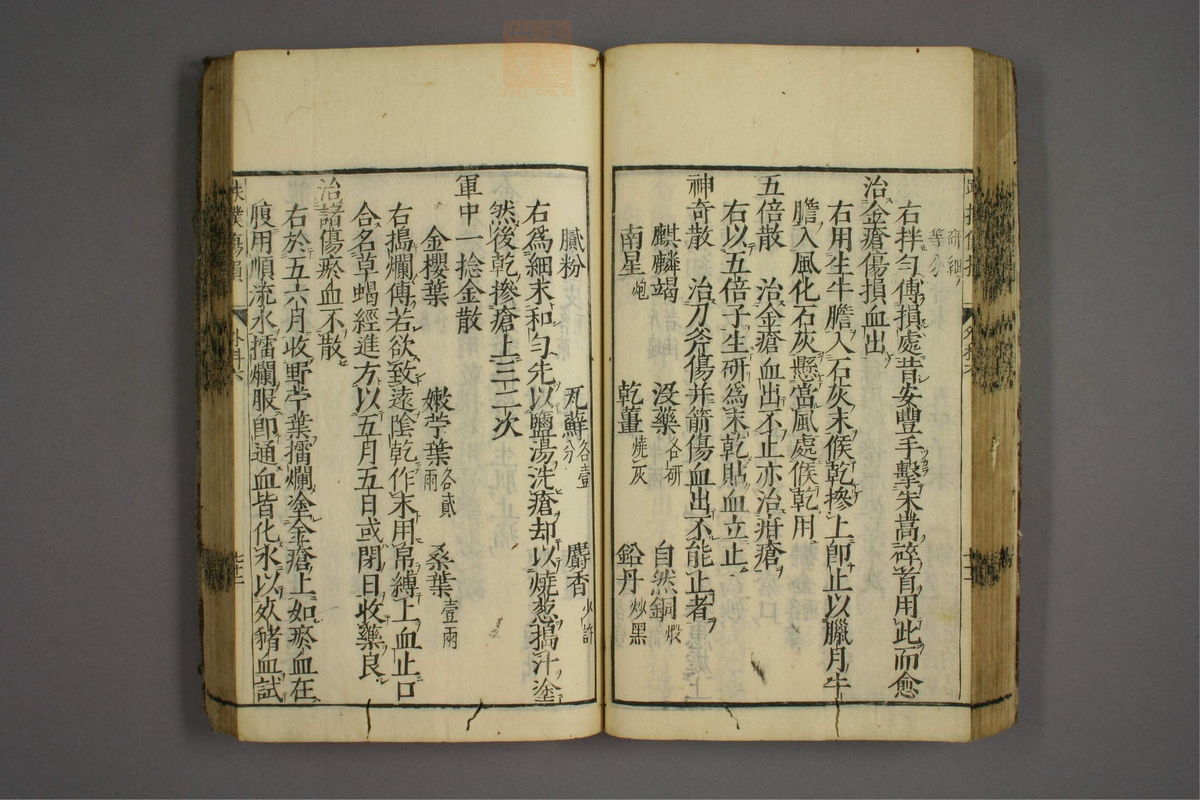 研細
等分
右拌勻傅損處昔安豐手擊朱嵩碎首用此而愈
治金瘡傷損血出
右用生牛膽入石灰末候乾摻上即止以臘月牛
膽入風化石灰懸當風處候乾用
五倍散 治金瘡血出不止亦治疳瘡
右以五倍子生研為末乾貼血立止
神奇散 治刀斧傷并箭傷血出不能止者
麒麟竭 沒藥各研 自然銅煅
南星炮 乾薑燒灰 鉛丹炒黑
膩粉 麝香少許
右為細末和勻先以鹽湯洗瘡却以燒葱搗汁塗
然後乾摻瘡上三二次
軍中一捻金散
金櫻葉 嫩苧葉各貳兩 桑葉壹兩
右搗爛傅若欲致遠陰乾作末用帛縛上血止口
合名草蝎經進方以五月五日或閉日收藥良
治諸傷瘀血不散
右於五六月收野苧葉擂爛塗金瘡上如瘀血在
腹用順流水擂爛服即通血皆化水以效豬血試
跌撲傷損 外科六